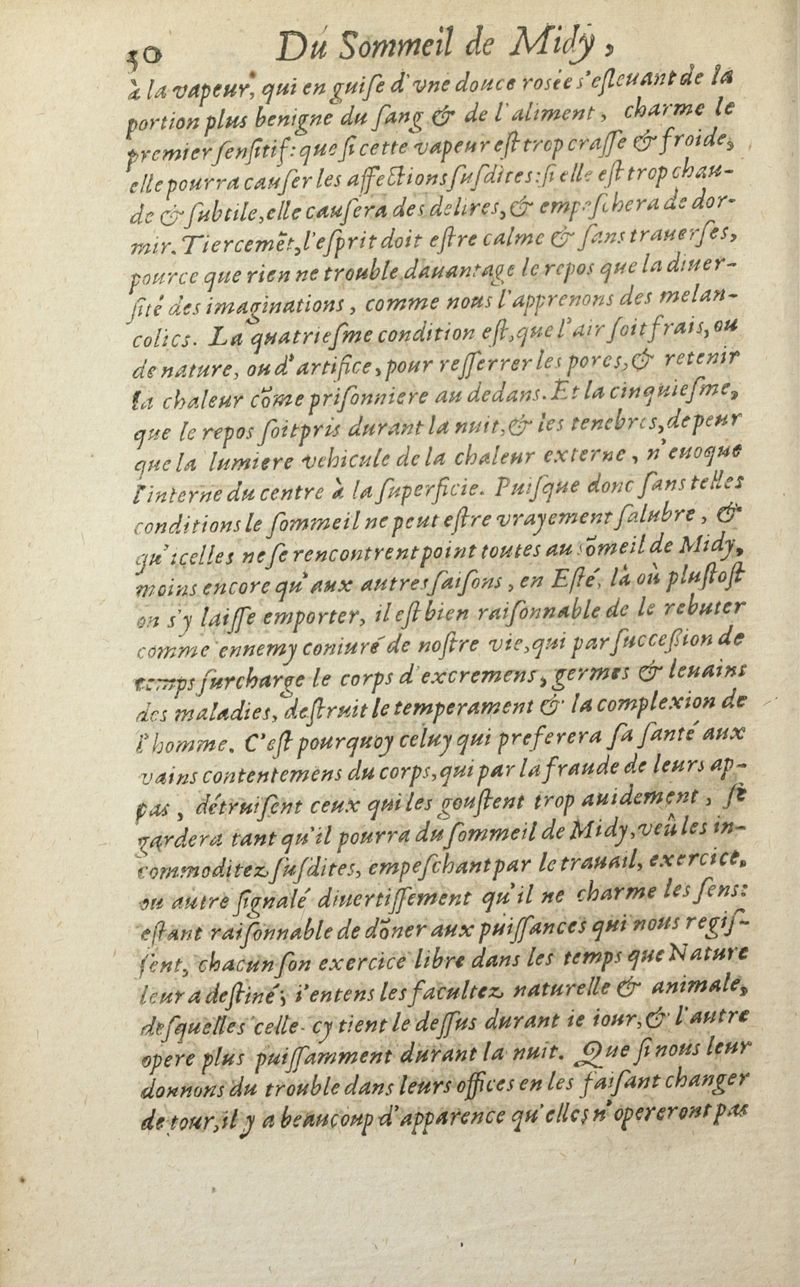 50 Du Sommeil de Midy,
à la vapeur, qui en guise d'vne douce rosée s'esleuant de la
portion plus benigne du sang & de l'aliment, charme le
premier sensitif: que si cette vapeur est trop crasse & froide,
elle pourra causer les affections susdites: si elle est trop chau-
de & subtile, elle causera des delires, & empeschera de dor-
mir. Tiercemēt, l'esprit doit estre calme & sans trauerses,
pource que rien ne trouble dauantage le repos que la diuer-
sité des imaginations, comme nous l'apprenons des melan-
colics. La quatriesme condition est, que l'air soit frais, ou
de nature, ou d'artifice, pour resserrer les pores, & retenir
la chaleur cōme prisonniere au dedans. Et la cinquiesme,
que le repos soit pris durant la nuit, & les tenebres, de peur
que la lumiere vehicule de la chaleur externe, n'euoque
l'interne du centre à la superficie. Puisque donc sans telles
conditions le sommeil ne peut estre vrayement salubre, &
qu'icelles ne se rencontrent point toutes au sōmeil de Midy,
moins encore qu'aux autres saisons, en Esté, là où plustost
on s'y laisse emporter, il est bien raisonnable de le rebuter
comme ennemy coniuré de nostre vie, qui par succession de
temps surcharge le corps d'excremens, germes & leuains
des maladies, destruit le temperament & la complexion de
l'homme. C'est pourquoy celuy qui preferera sa santé aux
vains contentemens du corps, qui par la fraude de leurs ap-
pas, détruisent ceux qui les goustent trop auidement, se
gardera tant qu'il pourra du sommeil de Midy, veu les in-
commoditez susdites, empeschant par le trauail, exercice,
ou autre signalé diuertissement qu'il ne charme les sens:
estant raisonnable de dōner aux puissances qui nous regis-
sent, chacun son exercice libre dans les temps que Nature
leur a destiné; i'entens les facultez naturelle & animale,
desquelles celle-cy tient le dessus durant le iour, & l'autre
opere plus puissamment durant la nuit. Que si nous leur
donnons du trouble dans leurs offices en les faisant changer
de tour, il y a beaucoup d'apparence qu'elles n'opereront pas